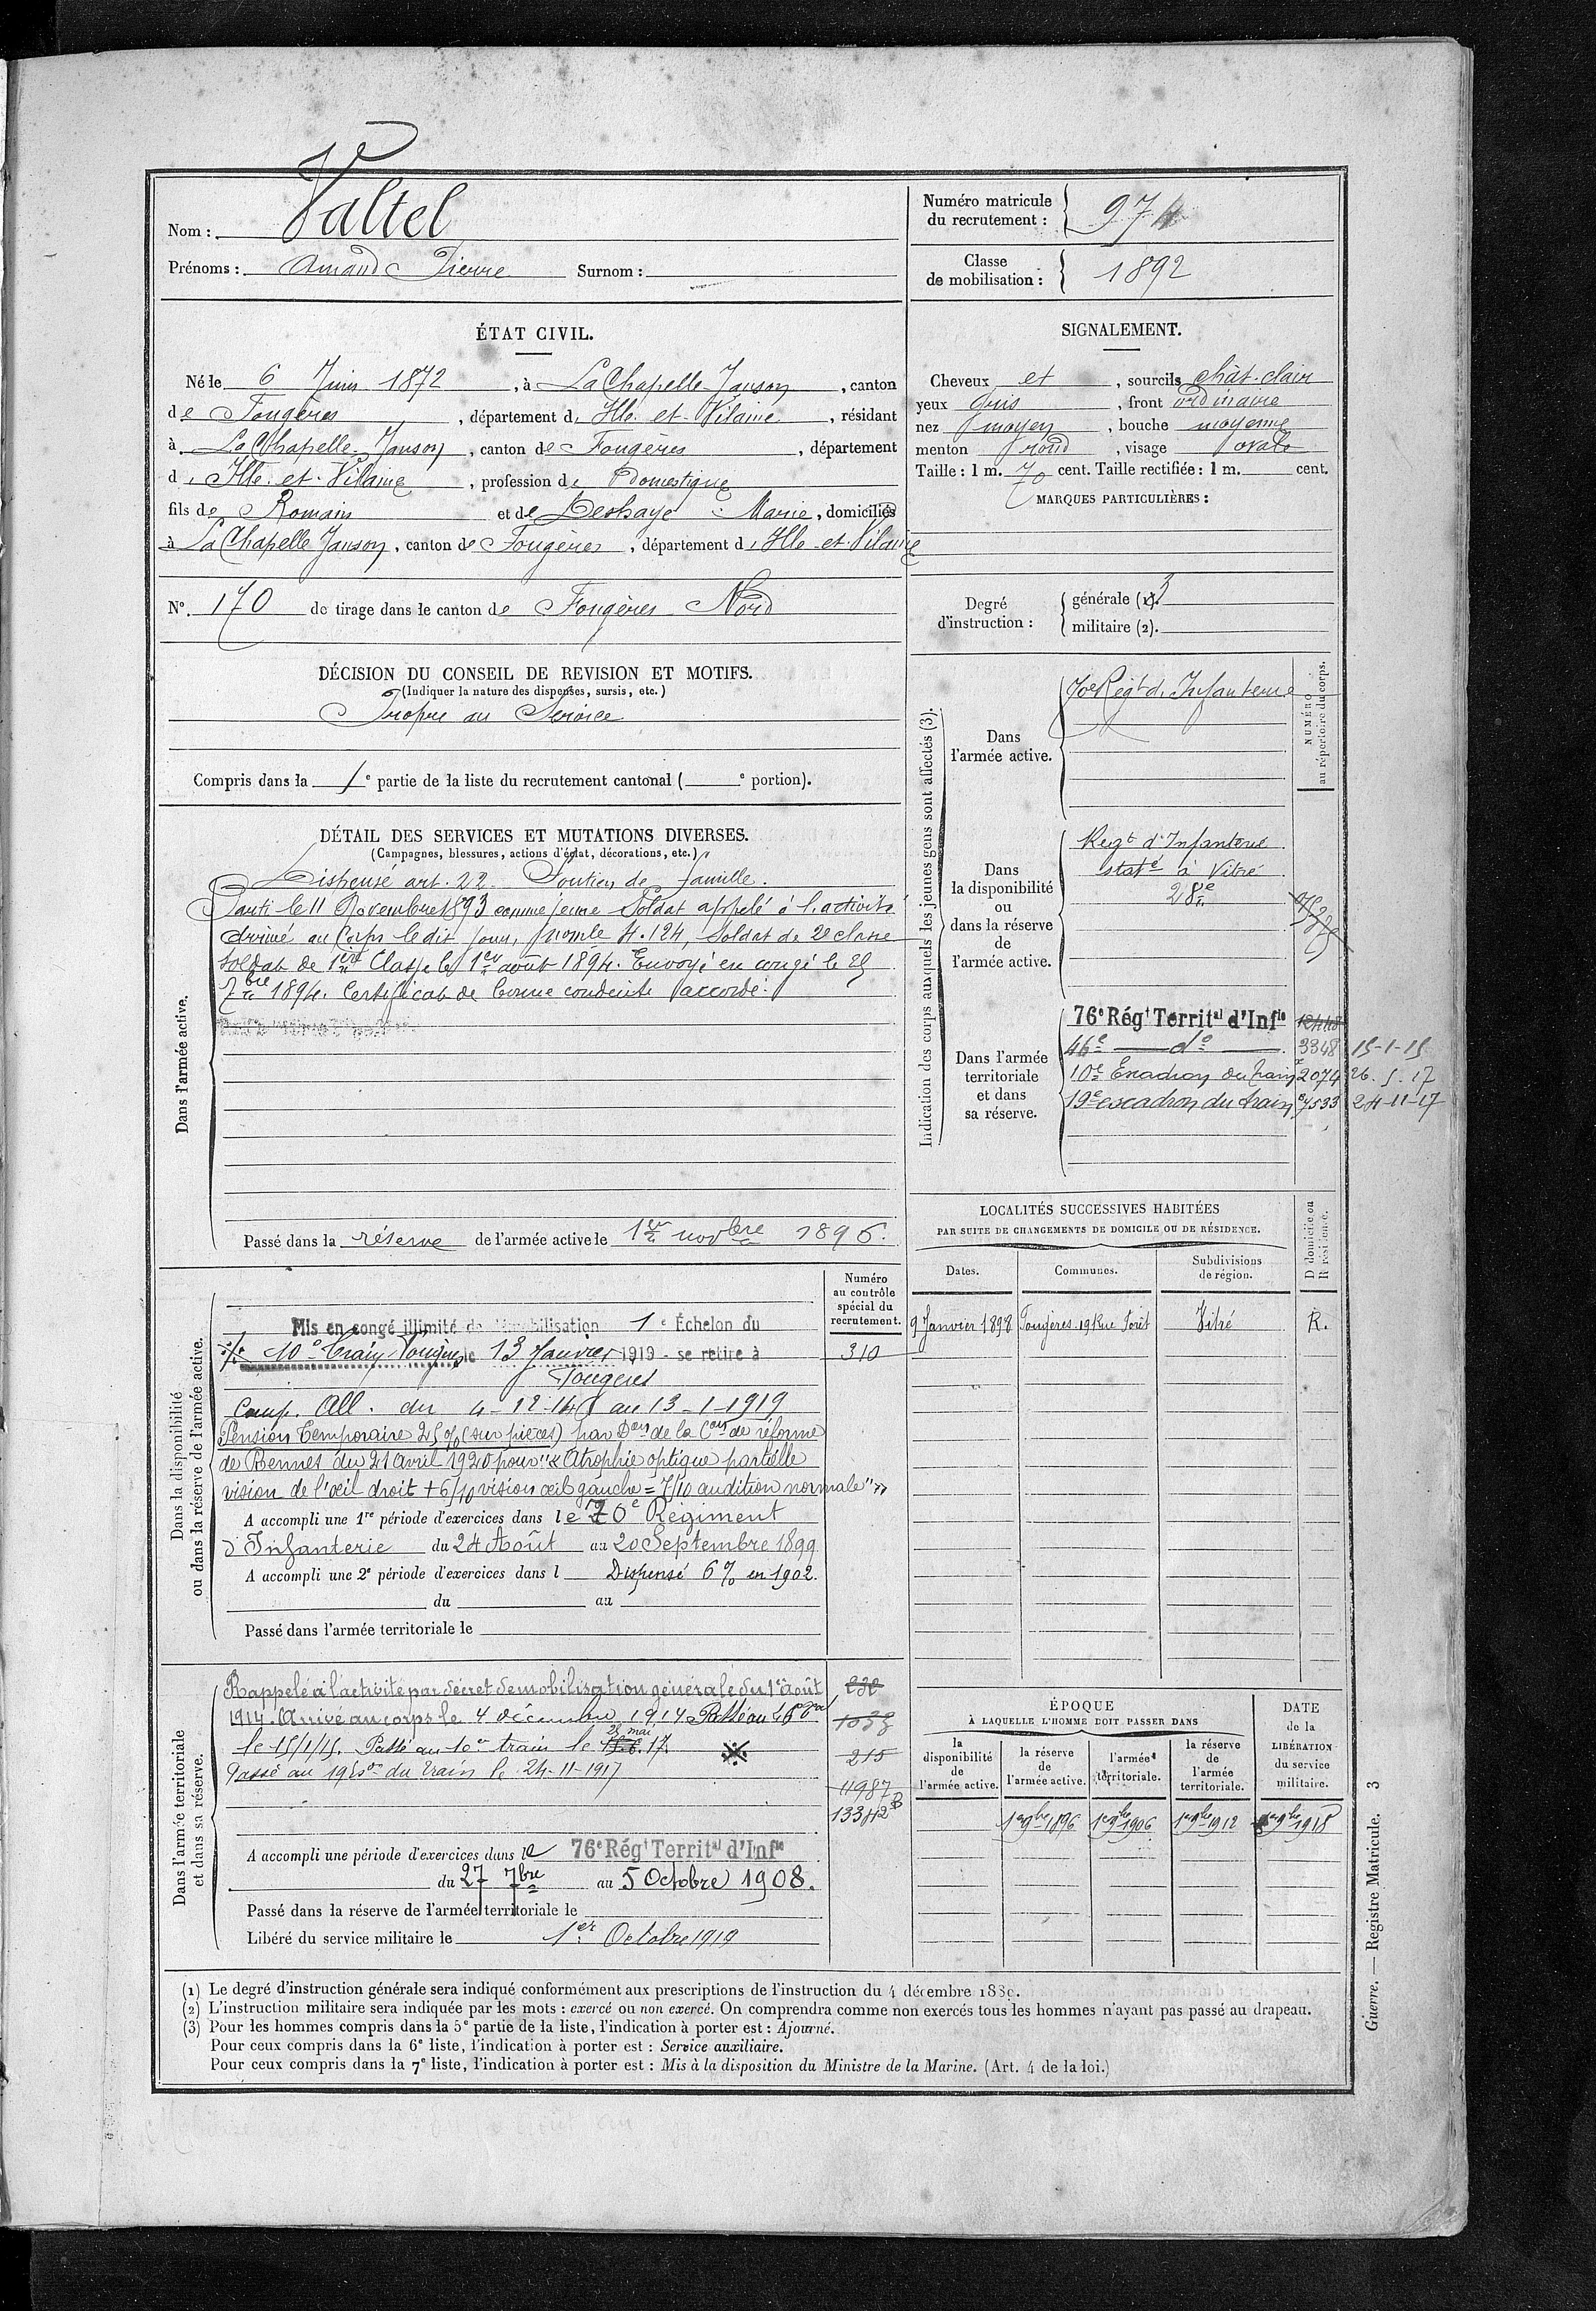 Nom : Valtel
Prénoms : Amand Pierre Surnom :
Numéro matricule du recrutement : 974
Classe de mobilisation : 1892
ÉTAT CIVIL.
Né le 6 Juin 1872, à La Chapelle-Janson, canton
de Fougères, département d'Ille-et-Vilaine, résidant
à La Chapelle-Janson, canton de Fougères, département
d'Ille-et-Vilaine, profession de Domestique
fils de Romain et de Deshaye Marie, domiciliés
à La Chapelle Janson, canton de Fougères, département d'Ille et Vilaine
N° 170 de tirage dans le canton de Fougères Nord
SIGNALEMENT.
Cheveux et, sourcils chât-clair
yeux Gris, front ordinaire
nez moyen, bouche moyenne
menton rond, visage ovale
Taille : 1 m. 70 cent. Taille rectifiée : 1 m. cent.
MARQUES PARTICULIÈRES :
Degré d'instruction : générale (1). 3
militaire (2).
DÉCISION DU CONSEIL DE REVISION ET MOTIFS.
(Indiquer la nature des dispenses, sursis, etc.)
Propre au Service
Compris dans la 1e partie de la liste du recrutement cantonal ( e portion).
DÉTAIL DES SERVICES ET MUTATIONS DIVERSES.
(Campagnes, blessures, actions d'éclat, décorations, etc.)
Dans l'armée active.
Dispensé art. 22. Soutien de famille.
Parti le 11 Novembre 1893 comme jeune Soldat appelé à l'activité
Arrivé au Corps le dit jour, immle 4.124, Soldat de 2e classe
Soldat de 1ère Classe le 1er août 1894. Envoyé en congé le 25
7bre 1894. Certificat de bonne conduite accordé.
Passé dans la réserve de l'armée active le 1er novbre 1896.
Indication des corps auxquels les jeunes gens sont affectés (3).
NUMÉRO au répertoire du corps.
Dans l'armée active.
70e Régt d'Infanterie
Dans la disponibilité ou dans la réserve de l'armée active.
Régt d'Infanterie
staté à Vitré
28e
Dans l'armée territoriale et dans sa réserve.
76e Régt Territal d'Infie
46e do 3348 15-1-15
10e Escadron du train 2074 26.5.17
19e escadron du train 7533 24-11-17
LOCALITÉS SUCCESSIVES HABITÉES
PAR SUITE DE CHANGEMENTS DE DOMICILE OU DE RÉSIDENCE.
Dates. Communes. Subdivisions de région. D domicile ou R résidence.
9 Janvier 1898 Fougères. 19 Rue Forêt Vitré R.
Dans la disponibilité ou dans la réserve de l'armée active.
Numéro au contrôle spécial du recrutement.
Mis en congé illimité de démobilisation 1e Échelon du
10e Train Fougères le 13 Janvier 1919 - se retire à 310
Fougères
Camp. All. du 4-12-14 au 13-1-1919
Pension Temporaire 25% (sur pièces) par Don de la Con de réforme
de Rennes du 21 Avril 1920 pour "Atrophie optique partielle
vision de l'œil droit + 6/10 vision œil gauche = 7/10 audition normale"
A accompli une 1re période d'exercices dans le 70e Régiment
d'Infanterie du 24 Août au 20 Septembre 1899
A accompli une 2e période d'exercices dans l Dispensé 6% en 1902.
du au
Passé dans l'armée territoriale le
Dans l'armée territoriale et dans sa réserve.
Rappelé à l'activité par décret de mobilisation générale du 1er août 232
1914. Arrivé au corps le 4 décembre 1914 Passé au 46e Tal 1038
le 15/1/15. Passé au 10e train le 26 mai 17. 215
Passé au 19 Eson du train le 24-11-1917
11987
13342
A accompli une période d'exercices dans le 76e Régt Territal d'Infie
du 27 7bre au 5 Octobre 1908.
Passé dans la réserve de l'armée territoriale le
Libéré du service militaire le 1er Octobre 1919
ÉPOQUE
À LAQUELLE L'HOMME DOIT PASSER DANS
la disponibilité de l'armée active. la réserve de l'armée active. l'armée territoriale. la réserve de l'armée territoriale.
DATE de la LIBÉRATION du service militaire.
1er 9bre 1896 1er 9bre 1906 1er 9bre 1912 1er 9bre 1918
(1) Le degré d'instruction générale sera indiqué conformément aux prescriptions de l'instruction du 4 décembre 1889.
(2) L'instruction militaire sera indiquée par les mots : exercé ou non exercé. On comprendra comme non exercés tous les hommes n'ayant pas passé au drapeau.
(3) Pour les hommes compris dans la 5e partie de la liste, l'indication à porter est : Ajourné.
Pour ceux compris dans la 6e liste, l'indication à porter est : Service auxiliaire.
Pour ceux compris dans la 7e liste, l'indication à porter est : Mis à la disposition du Ministre de la Marine. (Art. 4 de la loi.)
Guerre. — Registre Matricule. 3